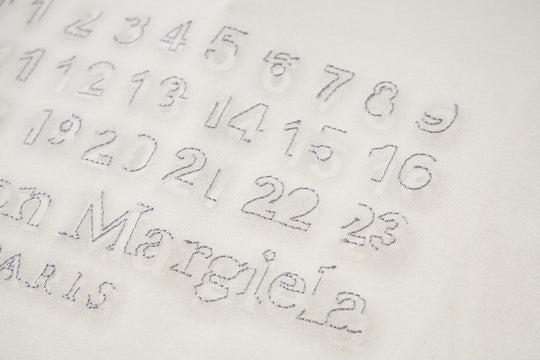 1 2 3 4 5 6 7 8 9
11 12 13 14 15 16
19 20 21 22 23
in Margiela
PARIS